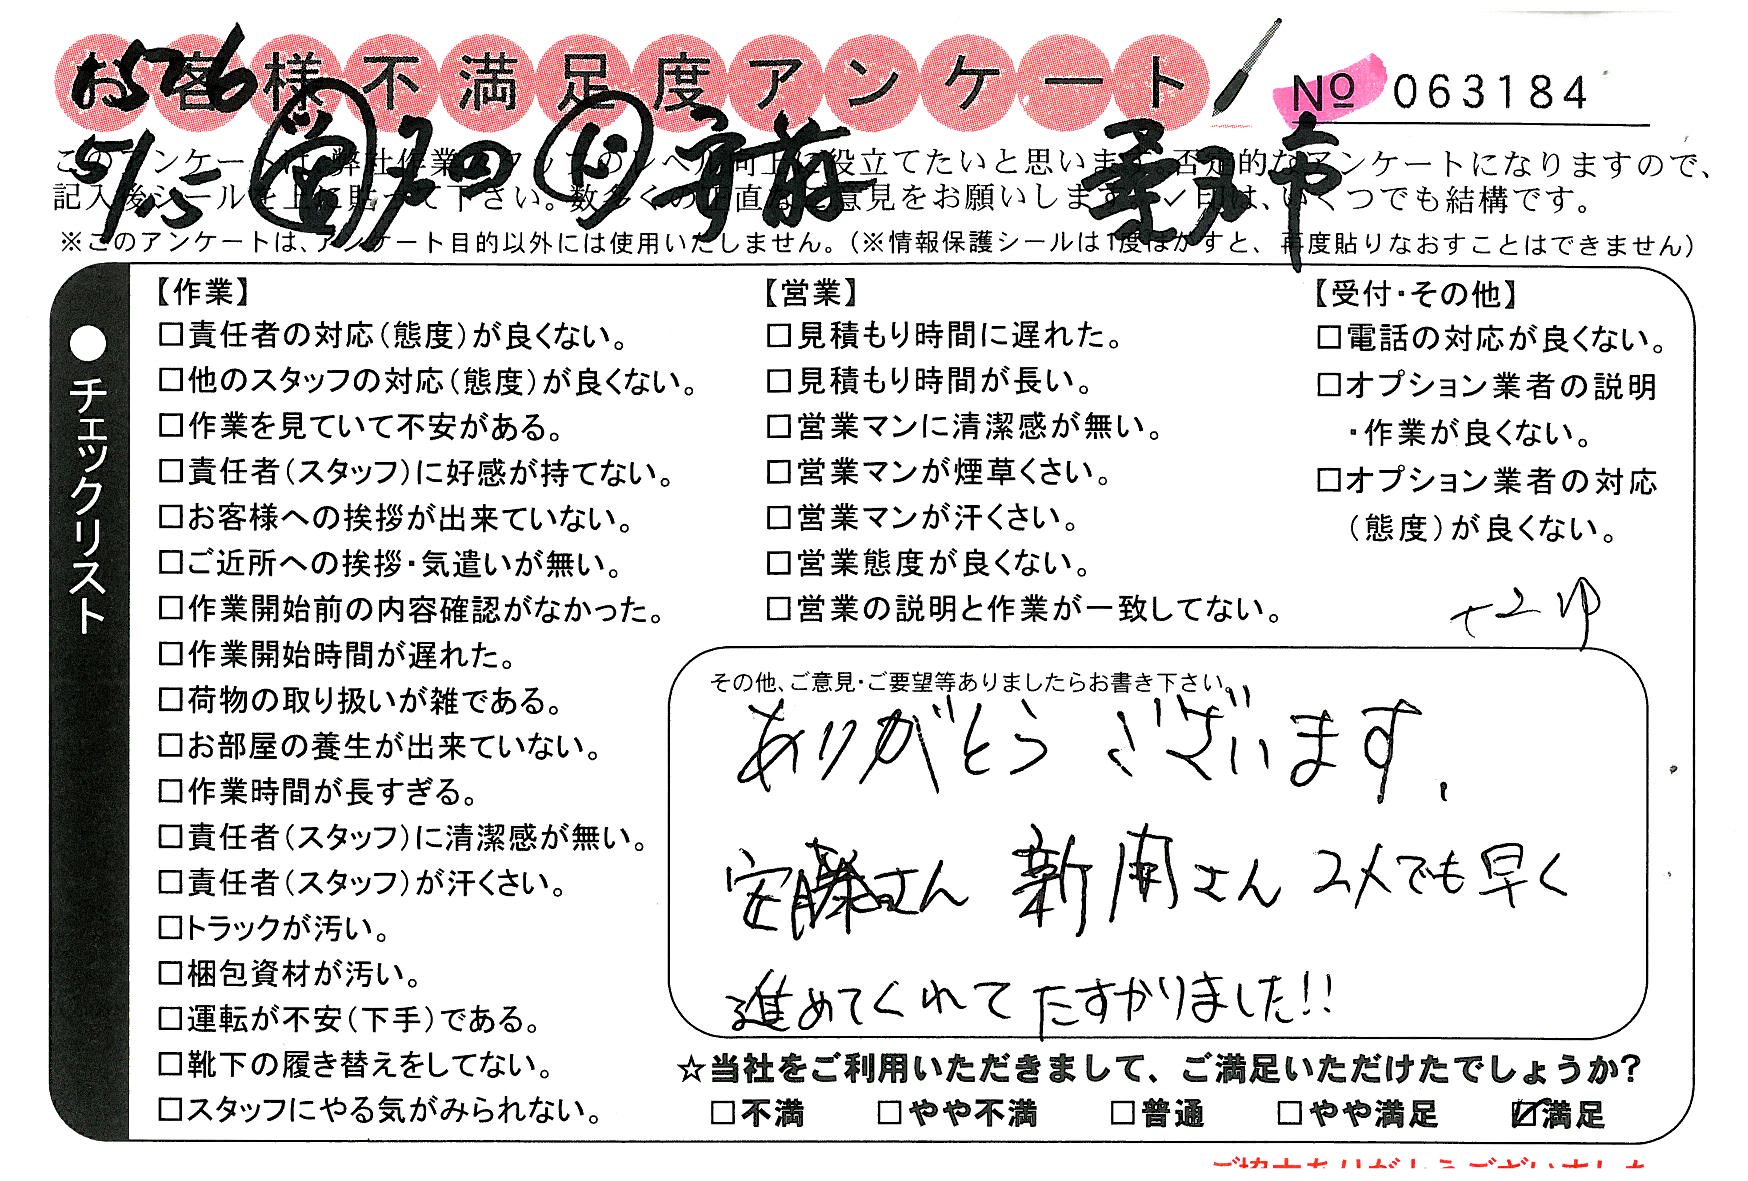 お客様不満足度アンケート
№ 063184
1576
5/15
このアンケートは、弊社作業スタッフのレベル向上に役立てたいと思います。否定的なアンケートになりますので、
記入後シールを上に貼って下さい。数多くの正直なご意見をお願いします。✓印は、いくつでも結構です。
※このアンケートは、アンケート目的以外には使用いたしません。(※情報保護シールは1度はがすと、再度貼りなおすことはできません)
●チェックリスト
【作業】
□責任者の対応(態度)が良くない。
□他のスタッフの対応(態度)が良くない。
□作業を見ていて不安がある。
□責任者(スタッフ)に好感が持てない。
□お客様への挨拶が出来ていない。
□ご近所への挨拶・気遣いが無い。
□作業開始前の内容確認がなかった。
□作業開始時間が遅れた。
□荷物の取り扱いが雑である。
□お部屋の養生が出来ていない。
□作業時間が長すぎる。
□責任者(スタッフ)に清潔感が無い。
□責任者(スタッフ)が汗くさい。
□トラックが汚い。
□梱包資材が汚い。
□運転が不安(下手)である。
□靴下の履き替えをしてない。
□スタッフにやる気がみられない。
【営業】
□見積もり時間に遅れた。
□見積もり時間が長い。
□営業マンに清潔感が無い。
□営業マンが煙草くさい。
□営業マンが汗くさい。
□営業態度が良くない。
□営業の説明と作業が一致してない。
【受付・その他】
□電話の対応が良くない。
□オプション業者の説明
・作業が良くない。
□オプション業者の対応
(態度)が良くない。
その他、ご意見・ご要望等ありましたらお書き下さい。
ありがとうございます。
安藤さん 新開さん 2人でも早く
進めてくれて たすかりました!!
☆当社をご利用いただきまして、ご満足いただけたでしょうか?
□不満 □やや不満 □普通 □やや満足 ☑満足
ご協力ありがとうございました